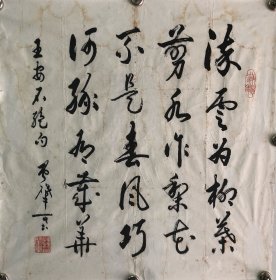 染雲为柳葉
剪水作梨花
不是春風巧
何緣有歲華
王安石絕句